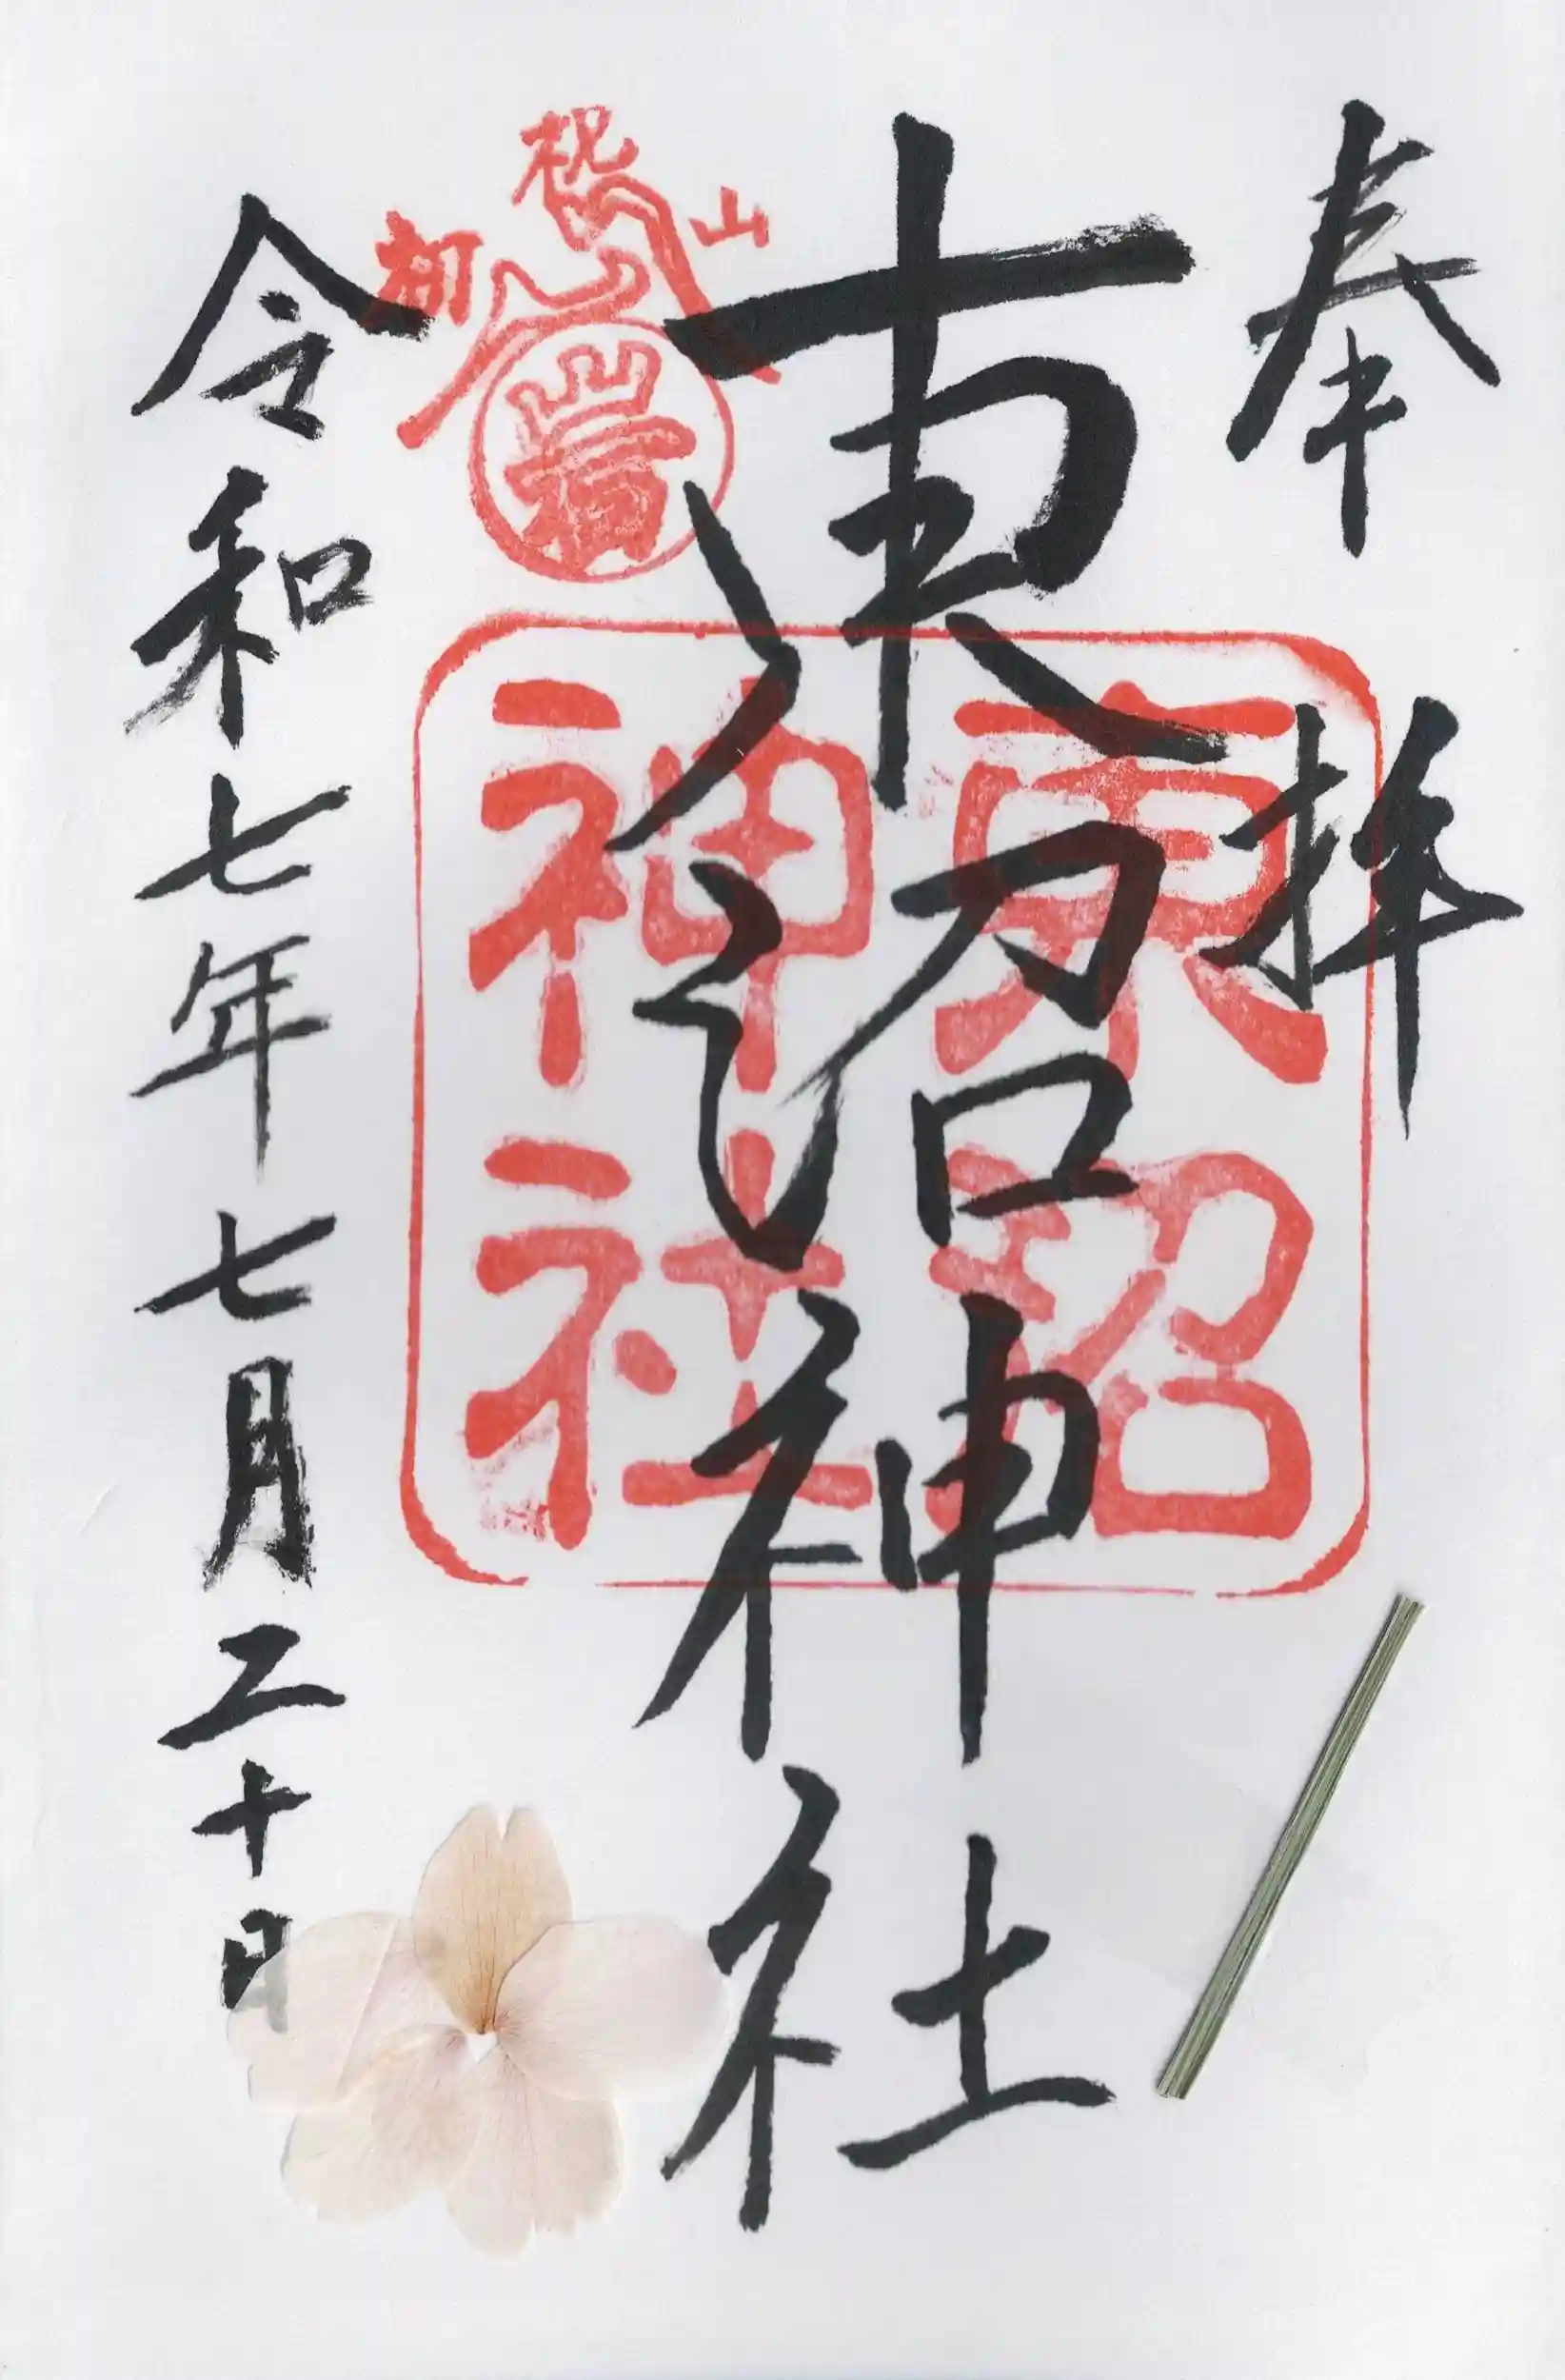 奉拝
東沼神社
東沼
神社
山
令和七年七月二十日